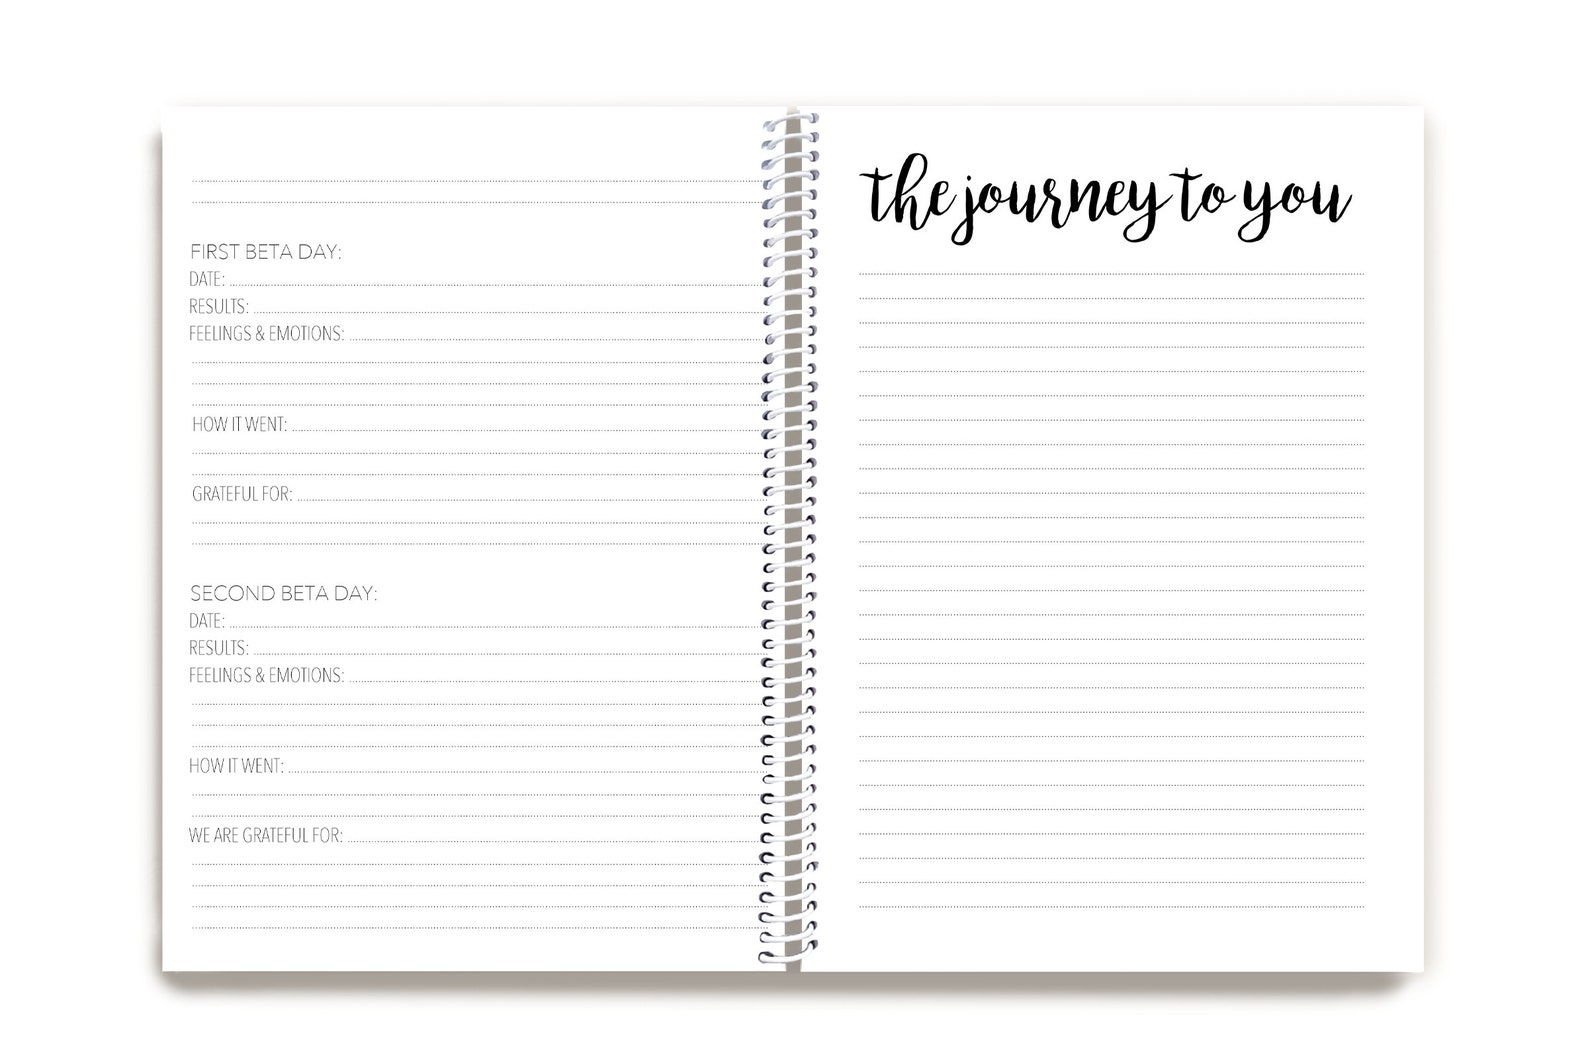 FIRST BETA DAY:
DATE:
RESULTS:
FEELINGS & EMOTIONS:
HOW IT WENT:
GRATEFUL FOR:
SECOND BETA DAY:
DATE:
RESULTS:
FEELINGS & EMOTIONS:
HOW IT WENT:
WE ARE GRATEFUL FOR:
the journey to you